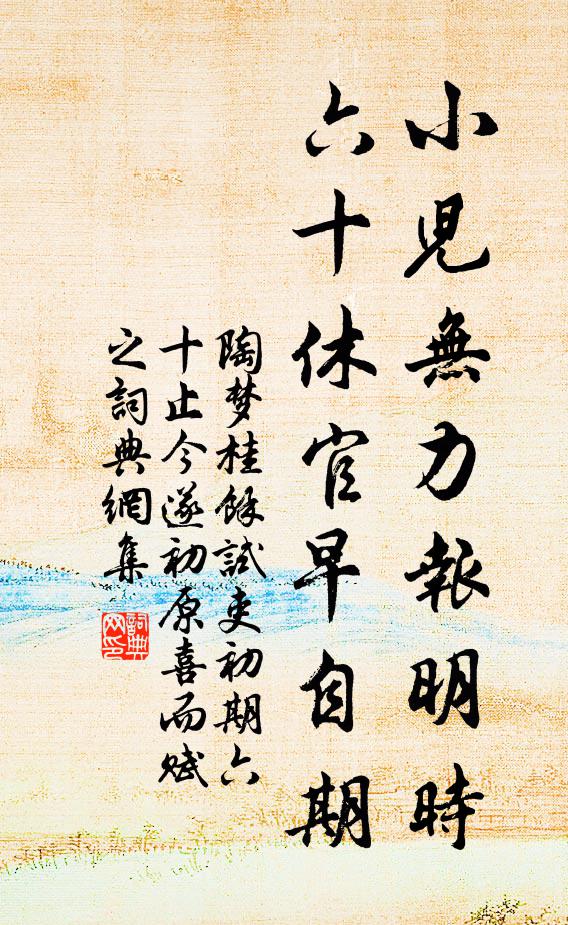 小児無力報明時
六十休官早自期
陶梦桂餘試吏初期六
十止今遂初原喜而赋
之詞典網集
詞典网印